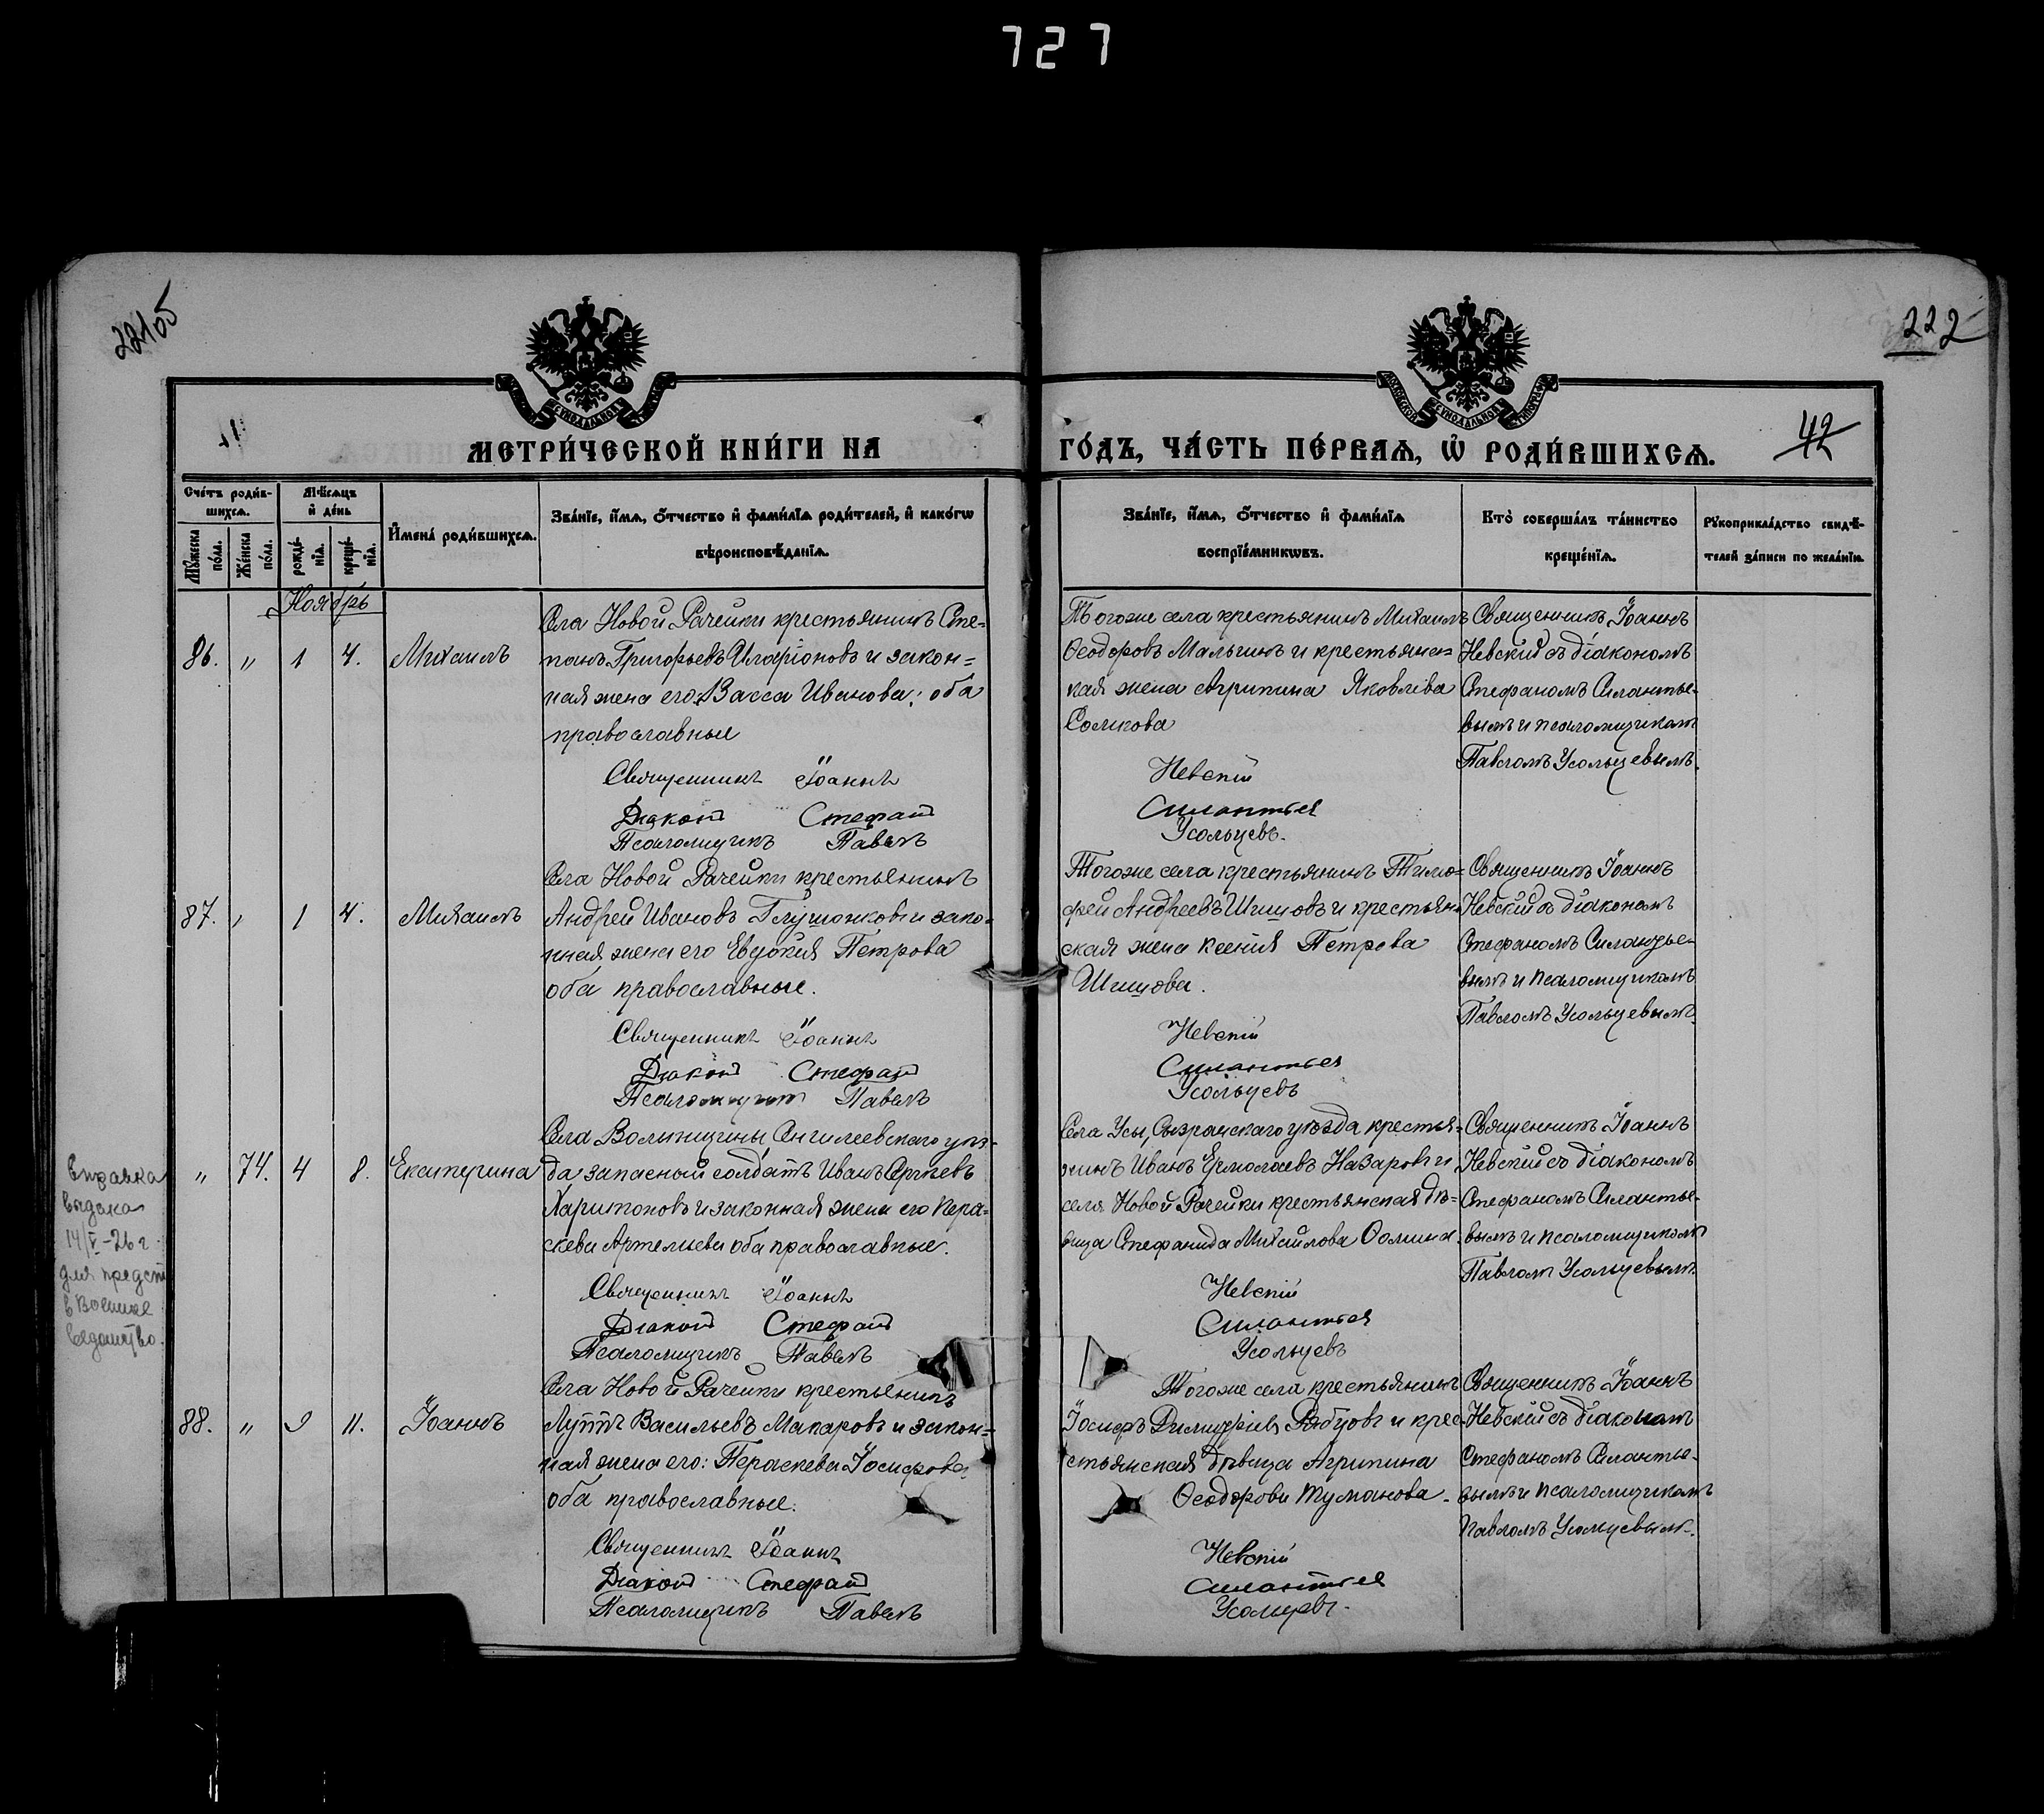 727
221об
222
42
МЕТРИ́ЧЕСКОЙ КНИ́ГИ НА
ГО́ДЪ, ЧА́СТЬ ПЕ́РВАѦ, Ѿ РОДИ́ВШИХСѦ.
Сче́тъ роди́в-
шихсѧ.
Мѣ́сѧцъ
и҆ де́нь
И҆мена̀ роди́вшихсѧ.
Зва́нїе, и҆́мѧ, ѻ҆́тчество и҆ фами́лїѧ роди́телей, и҆ како́гѡ
вѣроисповѣ́данїѧ.
Мꙋ́жеска
по́ла.
Же́нска
по́ла.
рожде́-
нїѧ.
креще́-
нїѧ.
Зва́нїе, и҆́мѧ, ѻ҆́тчество и҆ фами́лїѧ
воспрїе́мникѡвъ.
Кто̀ соверша́лъ та́инство
креще́нїѧ.
Рꙋкоприкла́дство свидѣ́-
телей за́писи по жела́нїю.
Ноябрь
86. " 1 4. Михаилъ
Села Новой Рачейки крестьянинъ Сте-
панъ Григорьевъ Иларіоновъ и закон-
ная жена его Васса Иванова; оба
православные
Священникъ Іоаннъ
Діаконъ Стефанъ
Псаломщикъ Павелъ
Тогоже села крестьянинъ Михаилъ
Ѳеодоровъ Малыгинъ и крестьянс-
кая жена Агрипина Яковлева
Сомкова
Невскій
Силантьев
Усольцевъ.
Священникъ Іоаннъ
Невскій съ діакономъ
Стефаномъ Силантье-
вымъ и псаломщикомъ
Павломъ Усольцевымъ.
87. " 1 4. Михаилъ
Села Новой Рачейки крестьянинъ
Андрей Ивановъ Глушонковъ и зако-
нная жена его Евдокія Петрова
оба православные.
Священникъ Іоаннъ
Діаконъ Стефанъ
Псаломщикъ Павелъ
Тогоже села крестьянинъ Тимо-
фей Андреевъ Шишовъ и крестьян-
ская жена Ксенія Петрова
Шишова.
Невскій
Силантьев
Усольцевъ
Священникъ Іоаннъ
Невскій съ діакономъ
Стефаномъ Силантье-
вымъ и псаломщикомъ
Павломъ Усольцевымъ.
Справка
выдана
14/V-26 г.
для предст
в Военное
ведомство.
" 74. 4 8. Екатерина
Села Волынщины Сенгилеевскаго уѣз-
да запасный солдатъ Иванъ Сергѣевъ
Харитоновъ и законная жена его Пера-
скева Артемьева оба православные.
Священникъ Іоаннъ
Діаконъ Стефанъ
Псаломщикъ Павелъ
Села Усы, Сызранскаго уѣзда крестья-
нинъ Иванъ Ермолаевъ Назаровъ и
села Новой Рачейки крестьянская дѣ-
вица Стефанида Михайлова Ѳомина.
Невскій
Силантьев
Усольцевъ
Священникъ Іоаннъ
Невскій съ діакономъ
Стефаномъ Силантье-
вымъ и псаломщикомъ
Павломъ Усольцевымъ.
88. " 9 11. Іоаннъ
Села Новой Рачейки крестьянинъ
Луппъ Васильевъ Макаровъ и закон-
ная жена его: Пераскева Іосифова
оба православные.
Священникъ Іоаннъ
Діаконъ Стефанъ
Псаломщикъ Павелъ
Тогоже села крестьянинъ
Іосифъ Димитріевъ Рябцовъ и кре-
стьянская дѣвица Агрипина
Ѳеодорова Туманова.
Невскій
Силантьев
Усольцевъ.
Священникъ Іоаннъ
Невскій съ діакономъ
Стефаномъ Силантье-
вымъ и псаломщикомъ
Павломъ Усольцевымъ.